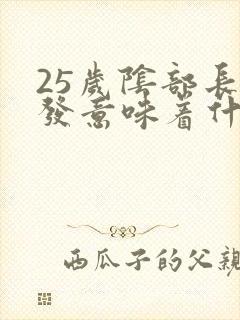 25歲陰部長
發意味着什
西瓜子的父親